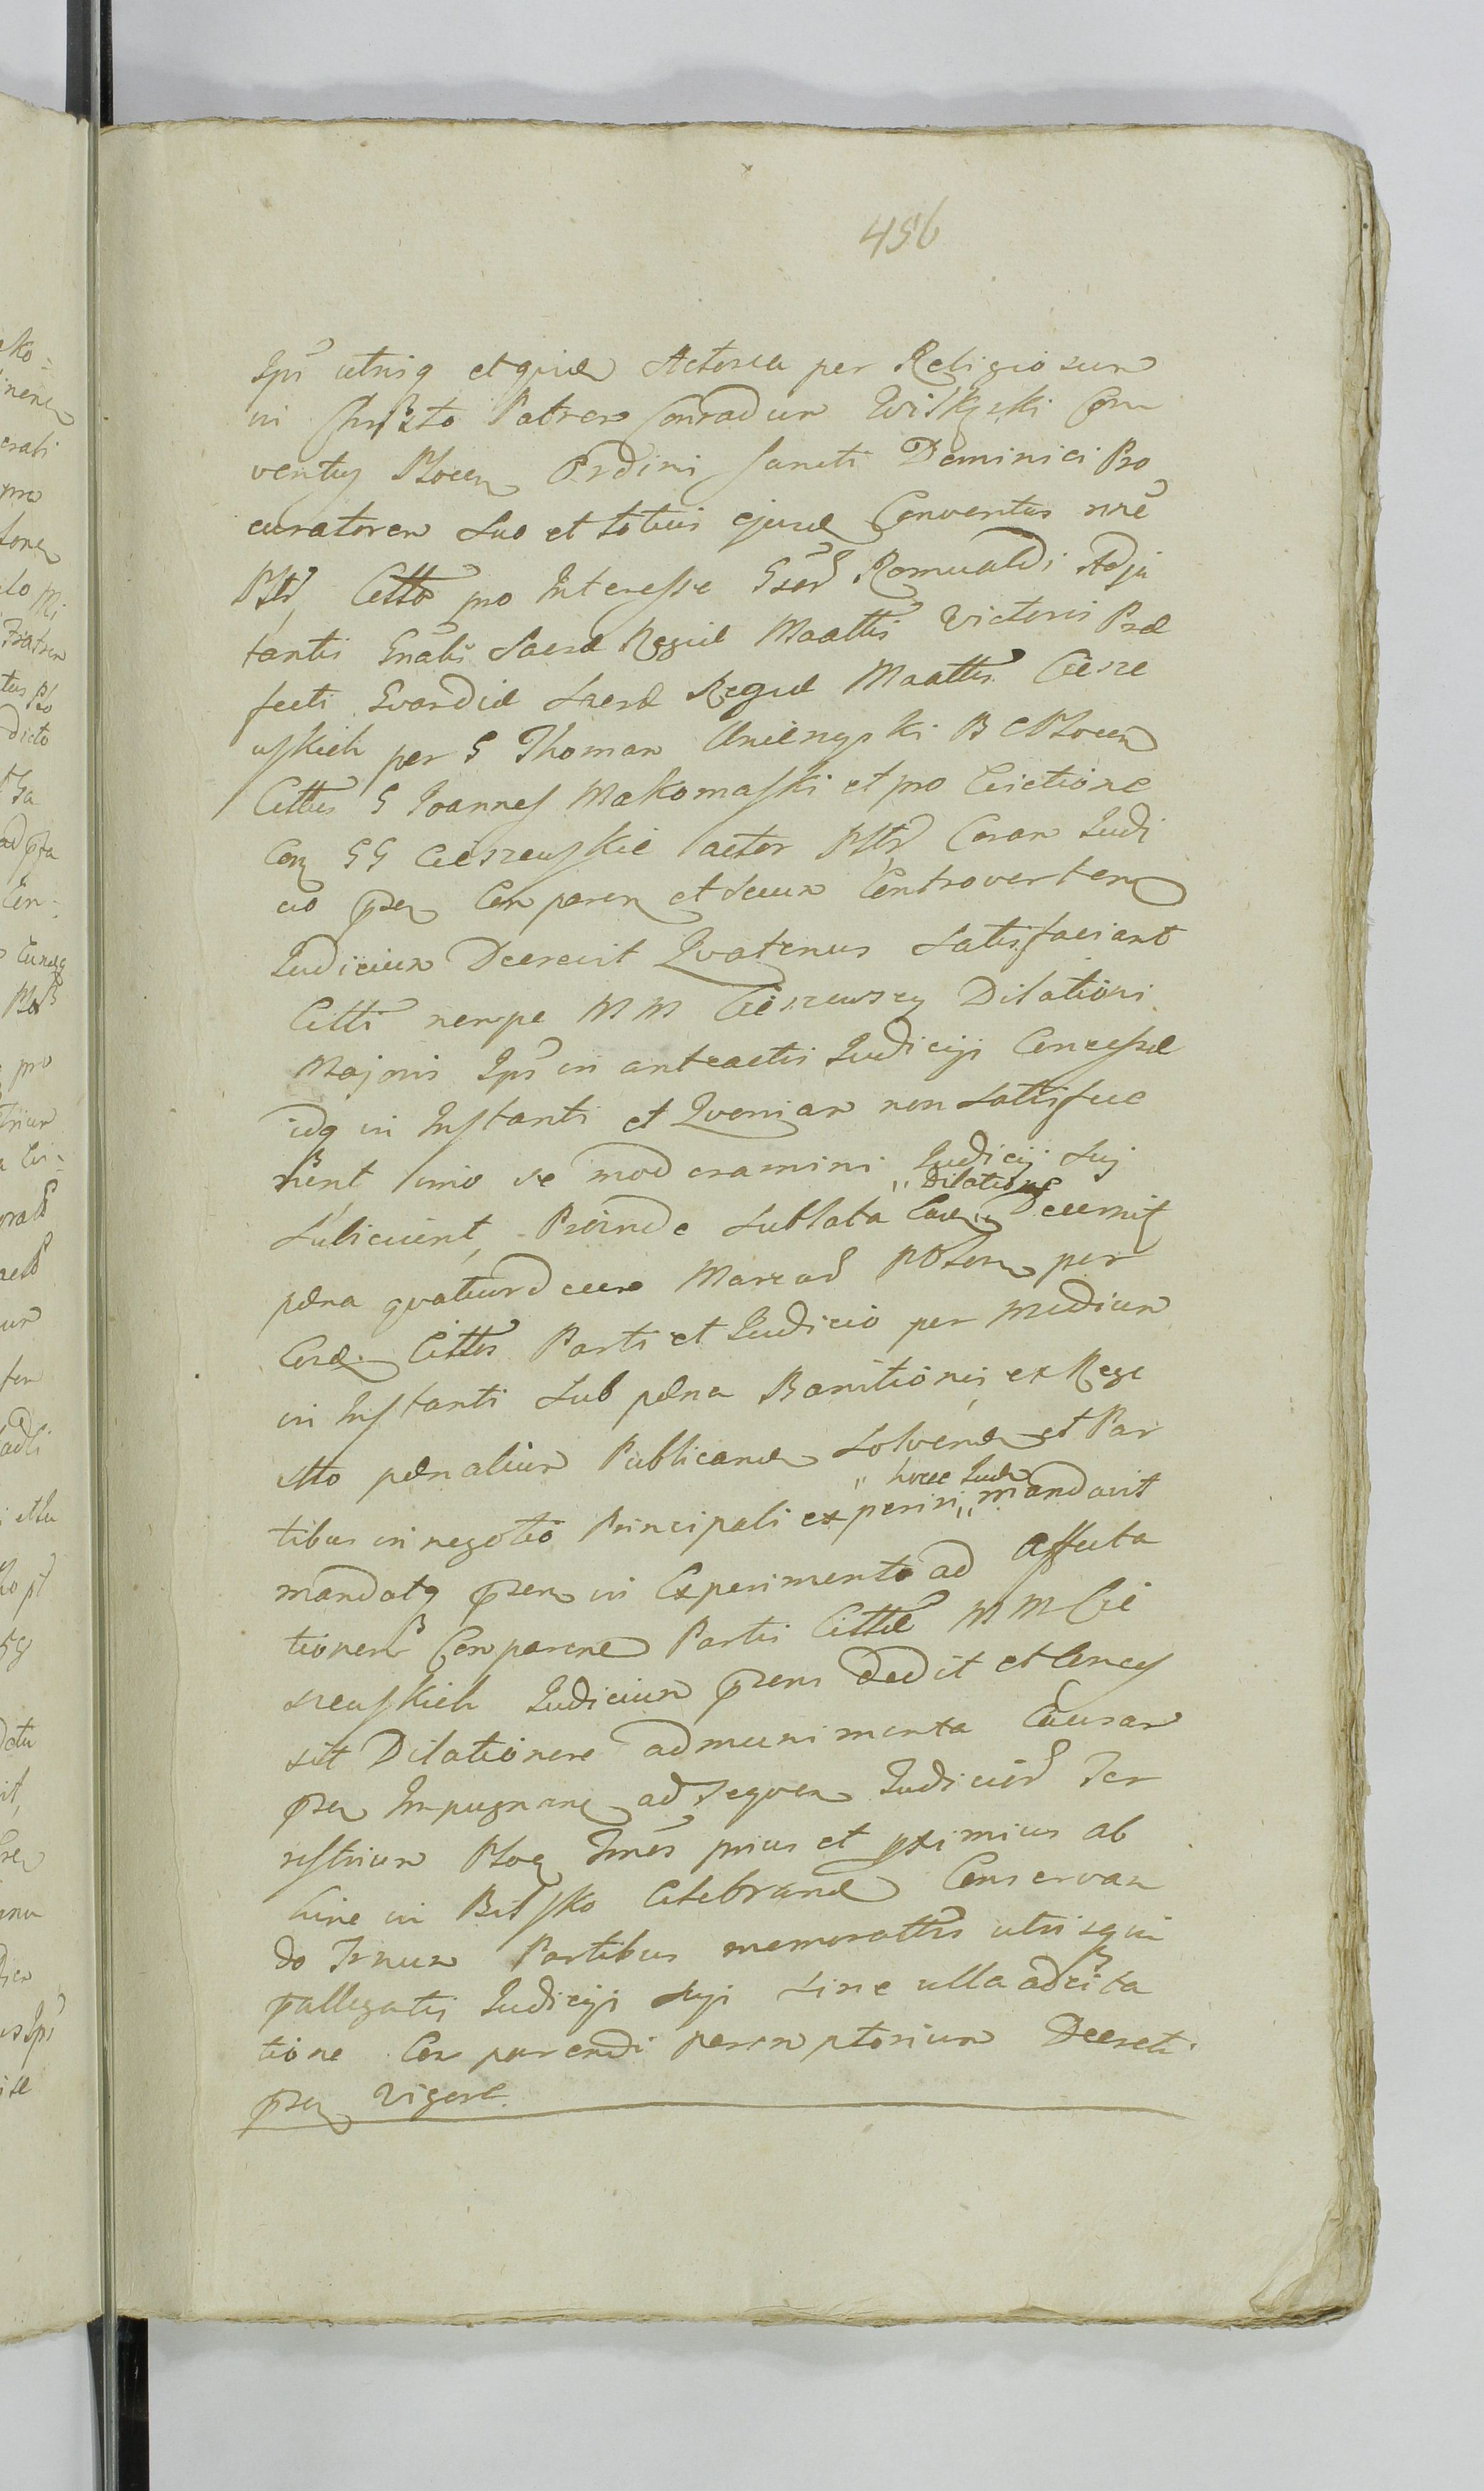 456
Ips utrisq et quid Actorea per Religiosum
in Christo Patrem Conradum Wilkęski Con
ventus Plocen Ordini Sancti Dominici Pro
curatorem Suo et totius ejusd Conventus nne
Pltr, Citto pro Interesse Gsor Romualdi Adju
tantis Gnalis Sacrae Regiae Maattis Victoris Prae
fecti Gvardiae Sacrae Regiae Maattis Ciesze
wskich per G Thomam B C Plocen
Cittus G Joannes Makomaski et pro Evictione
Con GG Cieszewskie actor Pltr Coram Judi
cio prsen Comparen et Secum Controverten
Judicium Decrevit Qvatenus Satisfaciant
Citti nempe M M Cieszewscy Dilationi
Majoris Ips in anteactis Judicys Concessae
idq in Instanti et Qvoniam non Sattisfece
rint imo se moderamini Judicij Sui
Dilatione
Subiciient, Proinde Sublata Eade Decernit
paena qvatuordecem Marcar Polon per
Cosd Cittos Parti et Judicio per medium
in Instanti Sub paena Banitionis ex Rege
stto paenalium Publicand Solvend et Par
hocce Jud
tibus in negotio Principali experiri mandavit
mandatq prsen in Experimento ad Affecta
tionem Comparend Partis Cittae M M Cie
szewskich Judicium prsens dedit et Conces
sit Dilationem ad munimenta Causam
prsen Impugnand ad Seqven Judicior Ter
restrium Ploc Tmos prius et proximius ab
hinc in Bilsko Celebrand Conservan
do Trnum Partibus memorattis utrisq in
pallegatis Judicijs Suji Sine ulla adcita
tione Comparendi peremptorium Decreti
prsen vigore.